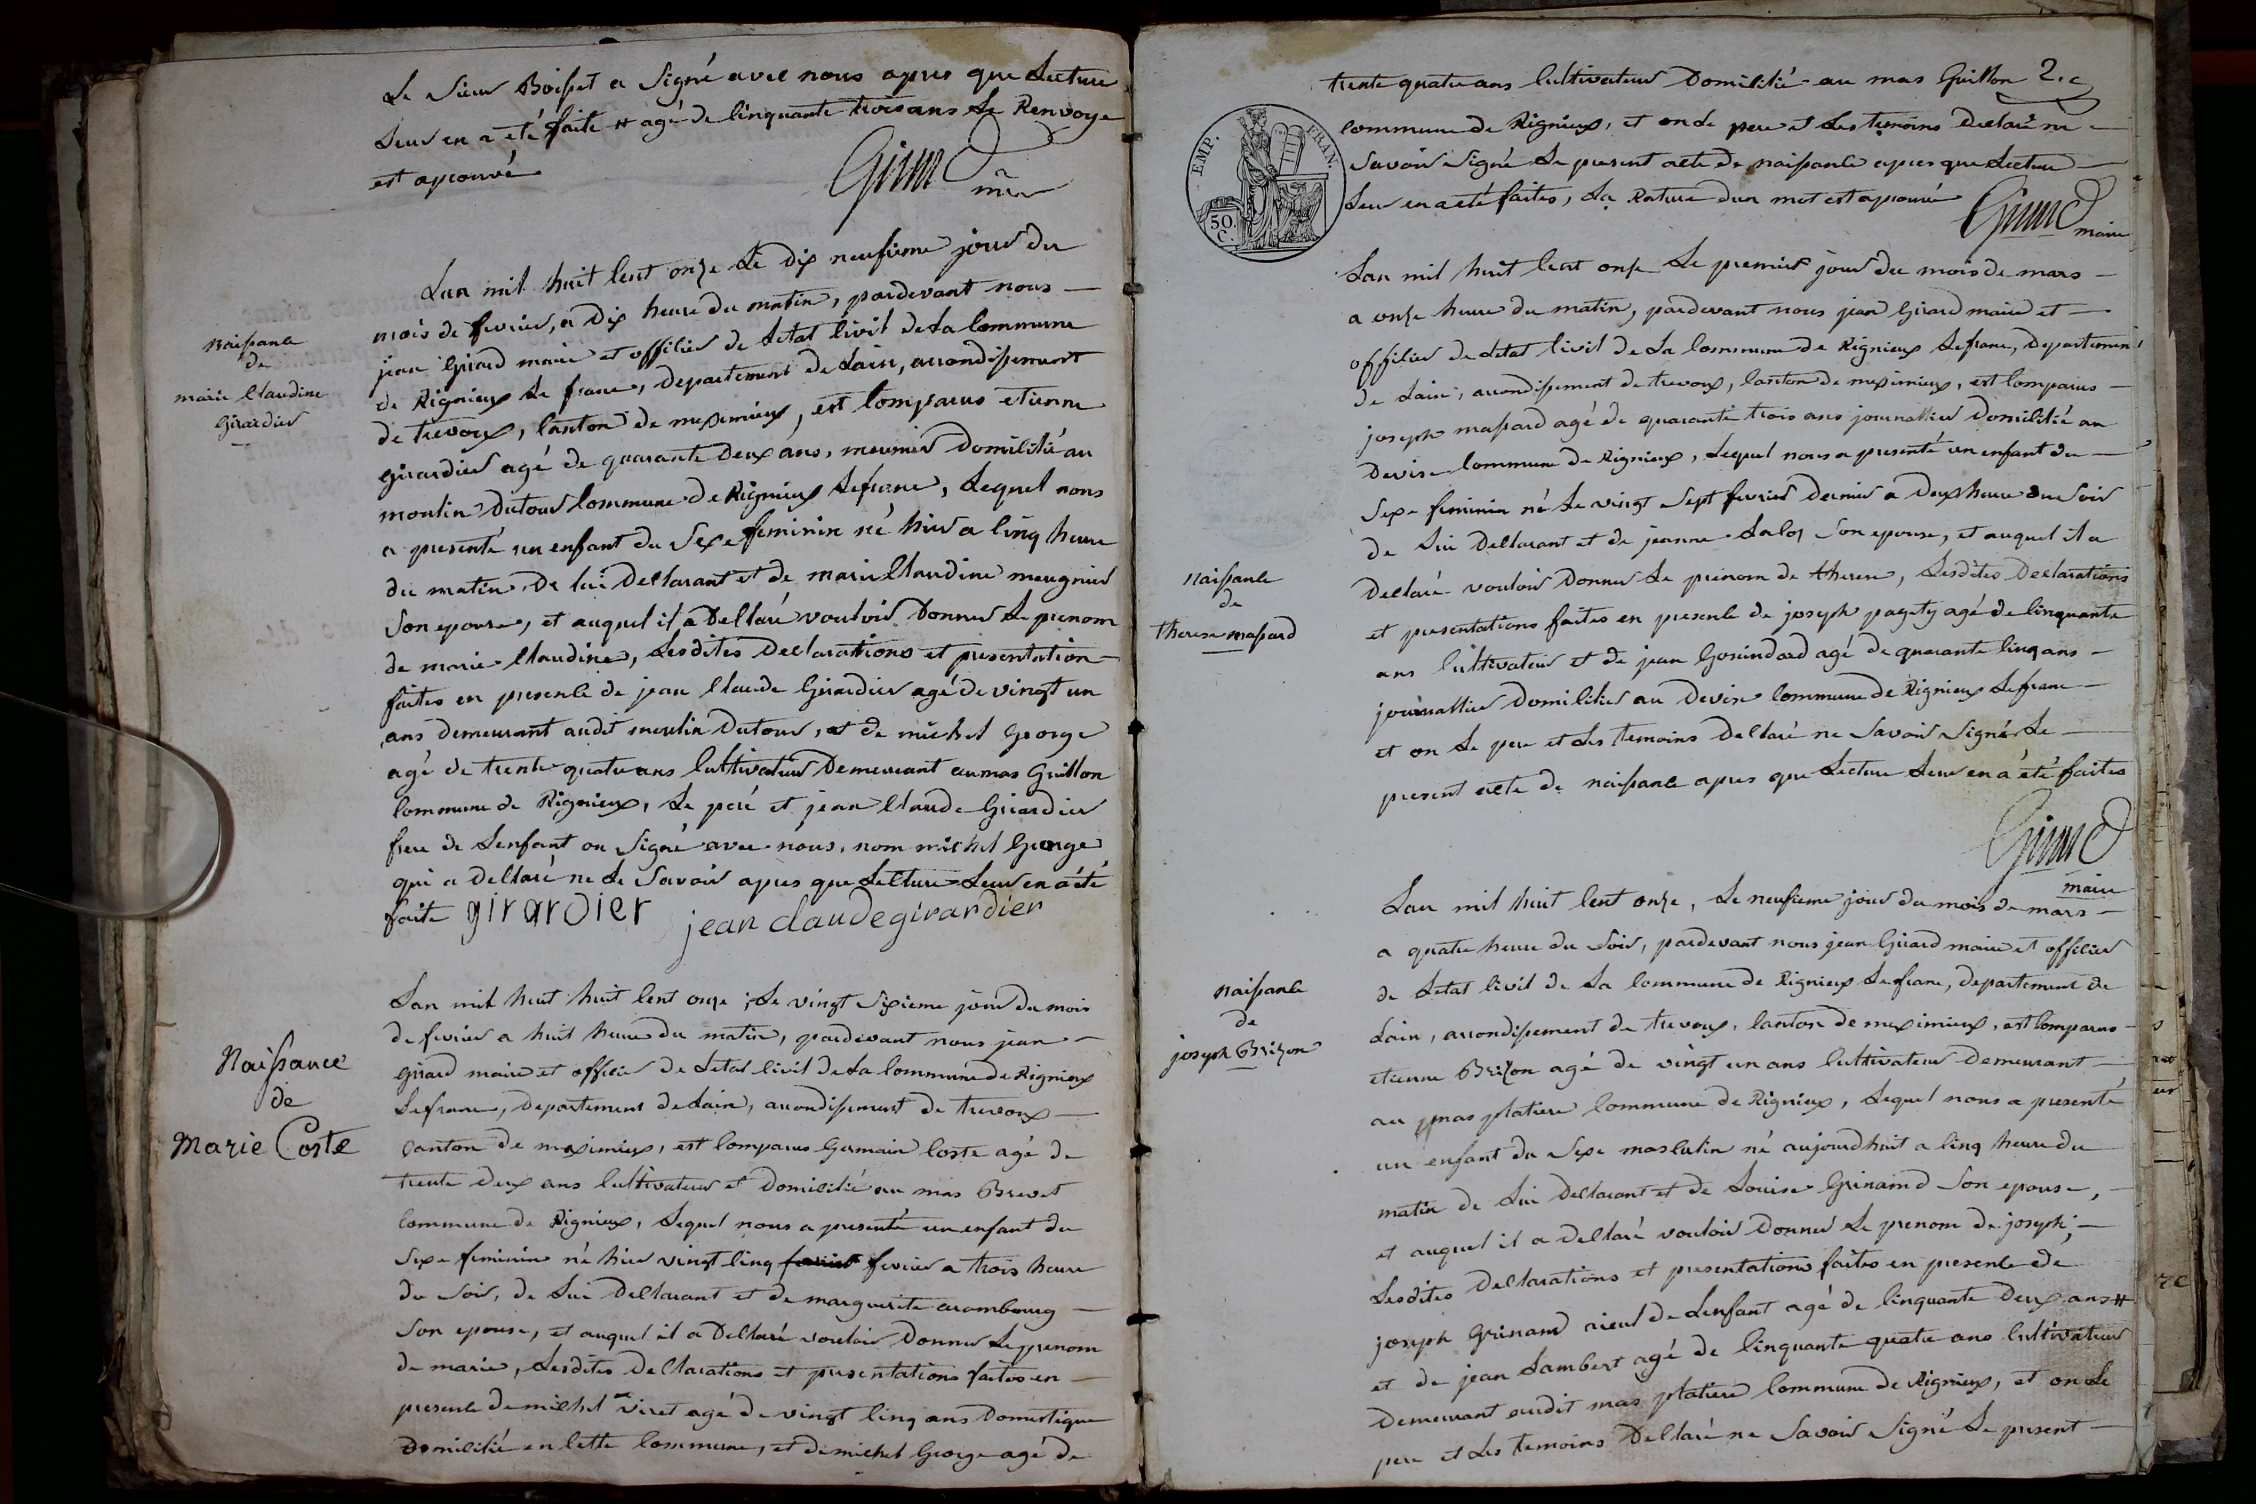 Le Sieur Boisset a Signé avec nous apres que Lecture
Leur en a eté faite # agé de Cinquante trois ans Le Renvoye
est aprouvé
Girard
mre
Naissance
de
marie Claudine
Girardier
Lan mil huit Cent onze Le Dix neufieme jour du
mois de fevrier, a Dix heure du matin, pardevant nous
jean Girard maire et officier de Letat Civil de La Commune
de Rignieux Le franc, departement de Lain, arrondissement
de trevoux, Canton de meximieux, est Comparus etienne
Girardier agé de quarante Deux ans, meunier Domicilié au
moulin Dutour Commune de Rignieux Lefranc, Lequel nous
a presenté un enfant du Sexe feminin né hier a Cinq heure
du matin De lui Declarant et de marie Claudine meugnier
Son epouse, et auquel il a Declaré vouloir Donner Le prenom
de marie Claudine, Lesdites Declarations et presentation
faites en presence de jean Claude Girardier agé de vingt un
ans Demeurant audit moulin Dutour, et de michel George
agé de trente quatre ans Cultivateur Demeurant au mas Guillon
Commune de Rignieux, Le peré et jean Claude Girardier
frere de Lenfant on Signé avec nous, nom michel George
qui a Declaré ne Le Savoir apres que Lecture Leur en a été
faite girardier jean claude girardier
Naissance
de
Marie Coste
Lan mil huit huit Cent onze, Le vingt Sixieme jour du mois
de fevrier a huit heure du matin, pardevant nous jean
Girard maire et officier de Letat Civil de La Commune de Rignieux
Lefranc, Departement de Lain, arrondissement de trevoux
Canton de meximieux, est Comparus Germain Coste agé de
trente Deux ans Cultivateur et Domicilié au mas Brevet
Commune de Rignieux, Lequel nous a presenté un enfant du
Sexe feminin né hier vingt Cinq fevrier a trois heure
du Soir, de Lui Declarant et de marguerite arambourg
Son epouse, et auquel il a Declaré vouloir Donner Le prenom
de marie, Lesdites Declarations et presentations faites en
presence de michel viret agé de vingt Cinq ans Domestique
Domicilié en Cette Commune, et de michel George agé de
trente quatre ans Cultivateur Domicilié au mas Guillon 2.e
EMP. FRAN.
50 C.
Commune de Rignieux, et on le pere et Les temoins Declaré ne
Savoir Signé Le present acte de naissance apres que Lecture
Leur en a eté faites, La Rature dun mot est aprouvé
Girard
maire
Naissance
de
therese massard
Lan mil huit Cent onze Le premier jour du mois de mars
a onze heure du matin, pardevant nous jean Girard maire et
officier de Letat Civil de La Commune de Rignieux Lefranc, Departement
de Lain, arrondissement de trevoux, Canton de meximieux, est Comparus
joseph massard agé de quarante trois ans journallier Domicilié au
Devin Commune de Rignieux, Lequel nous a presenté un enfant du
Sexe feminin né Le vingt Sept fevrier Dernier a Deux heure du Soir
de Lui Declarant et de jeanne Son epouse, et auquel il a
Declaré vouloir Donner Le prenom de therese, Lesdites Declarations
et presentations faites en presence de joseph pagety agé de Cinquante
ans Cultivateur et de jean agé de quarante Cinq ans
journallier Domicilier au Devin Commune de Rignieux Lefranc
et on Le pere et Les temoins Declaré ne Savoir Signér Le
present acte de naissance apres que Lecture Leur en a été faites
Girard
maire
Naissance
de
joseph Brizon
Lan mil huit Cent onze, Le neufieme jour du mois de mars
a quatre heure du Soir, pardevant nous jean Girard maire et officier
de Letat Civil de La Commune de Rignieux Lefranc, departement de
Lain, arrondissement de trevoux, Canton de meximieux, est Comparus
etienne Brizon agé de vingt un ans Cultivateur Demeurant
au mas platiere Commune de Rignieux, Lequel nous a presenté
un enfant du Sexe masculin né aujourdhuit a Cinq heure du
matin de Lui Declarant et de Louise Grinand Son epouse,
et auquel il a Declaré vouloir Donner Le prenom de joseph,
Lesdites Declarations et presentations faites en presence de
joseph Grinand aieul de Lenfant agé de Cinquante Deux ans #
et de jean Lambert agé de Cinquante quatre ans Cultivateur
Demeurant audit mas platiere Commune de Rignieux, et on Le
pere et Les temoins Declaré ne Savoir Signé Le present